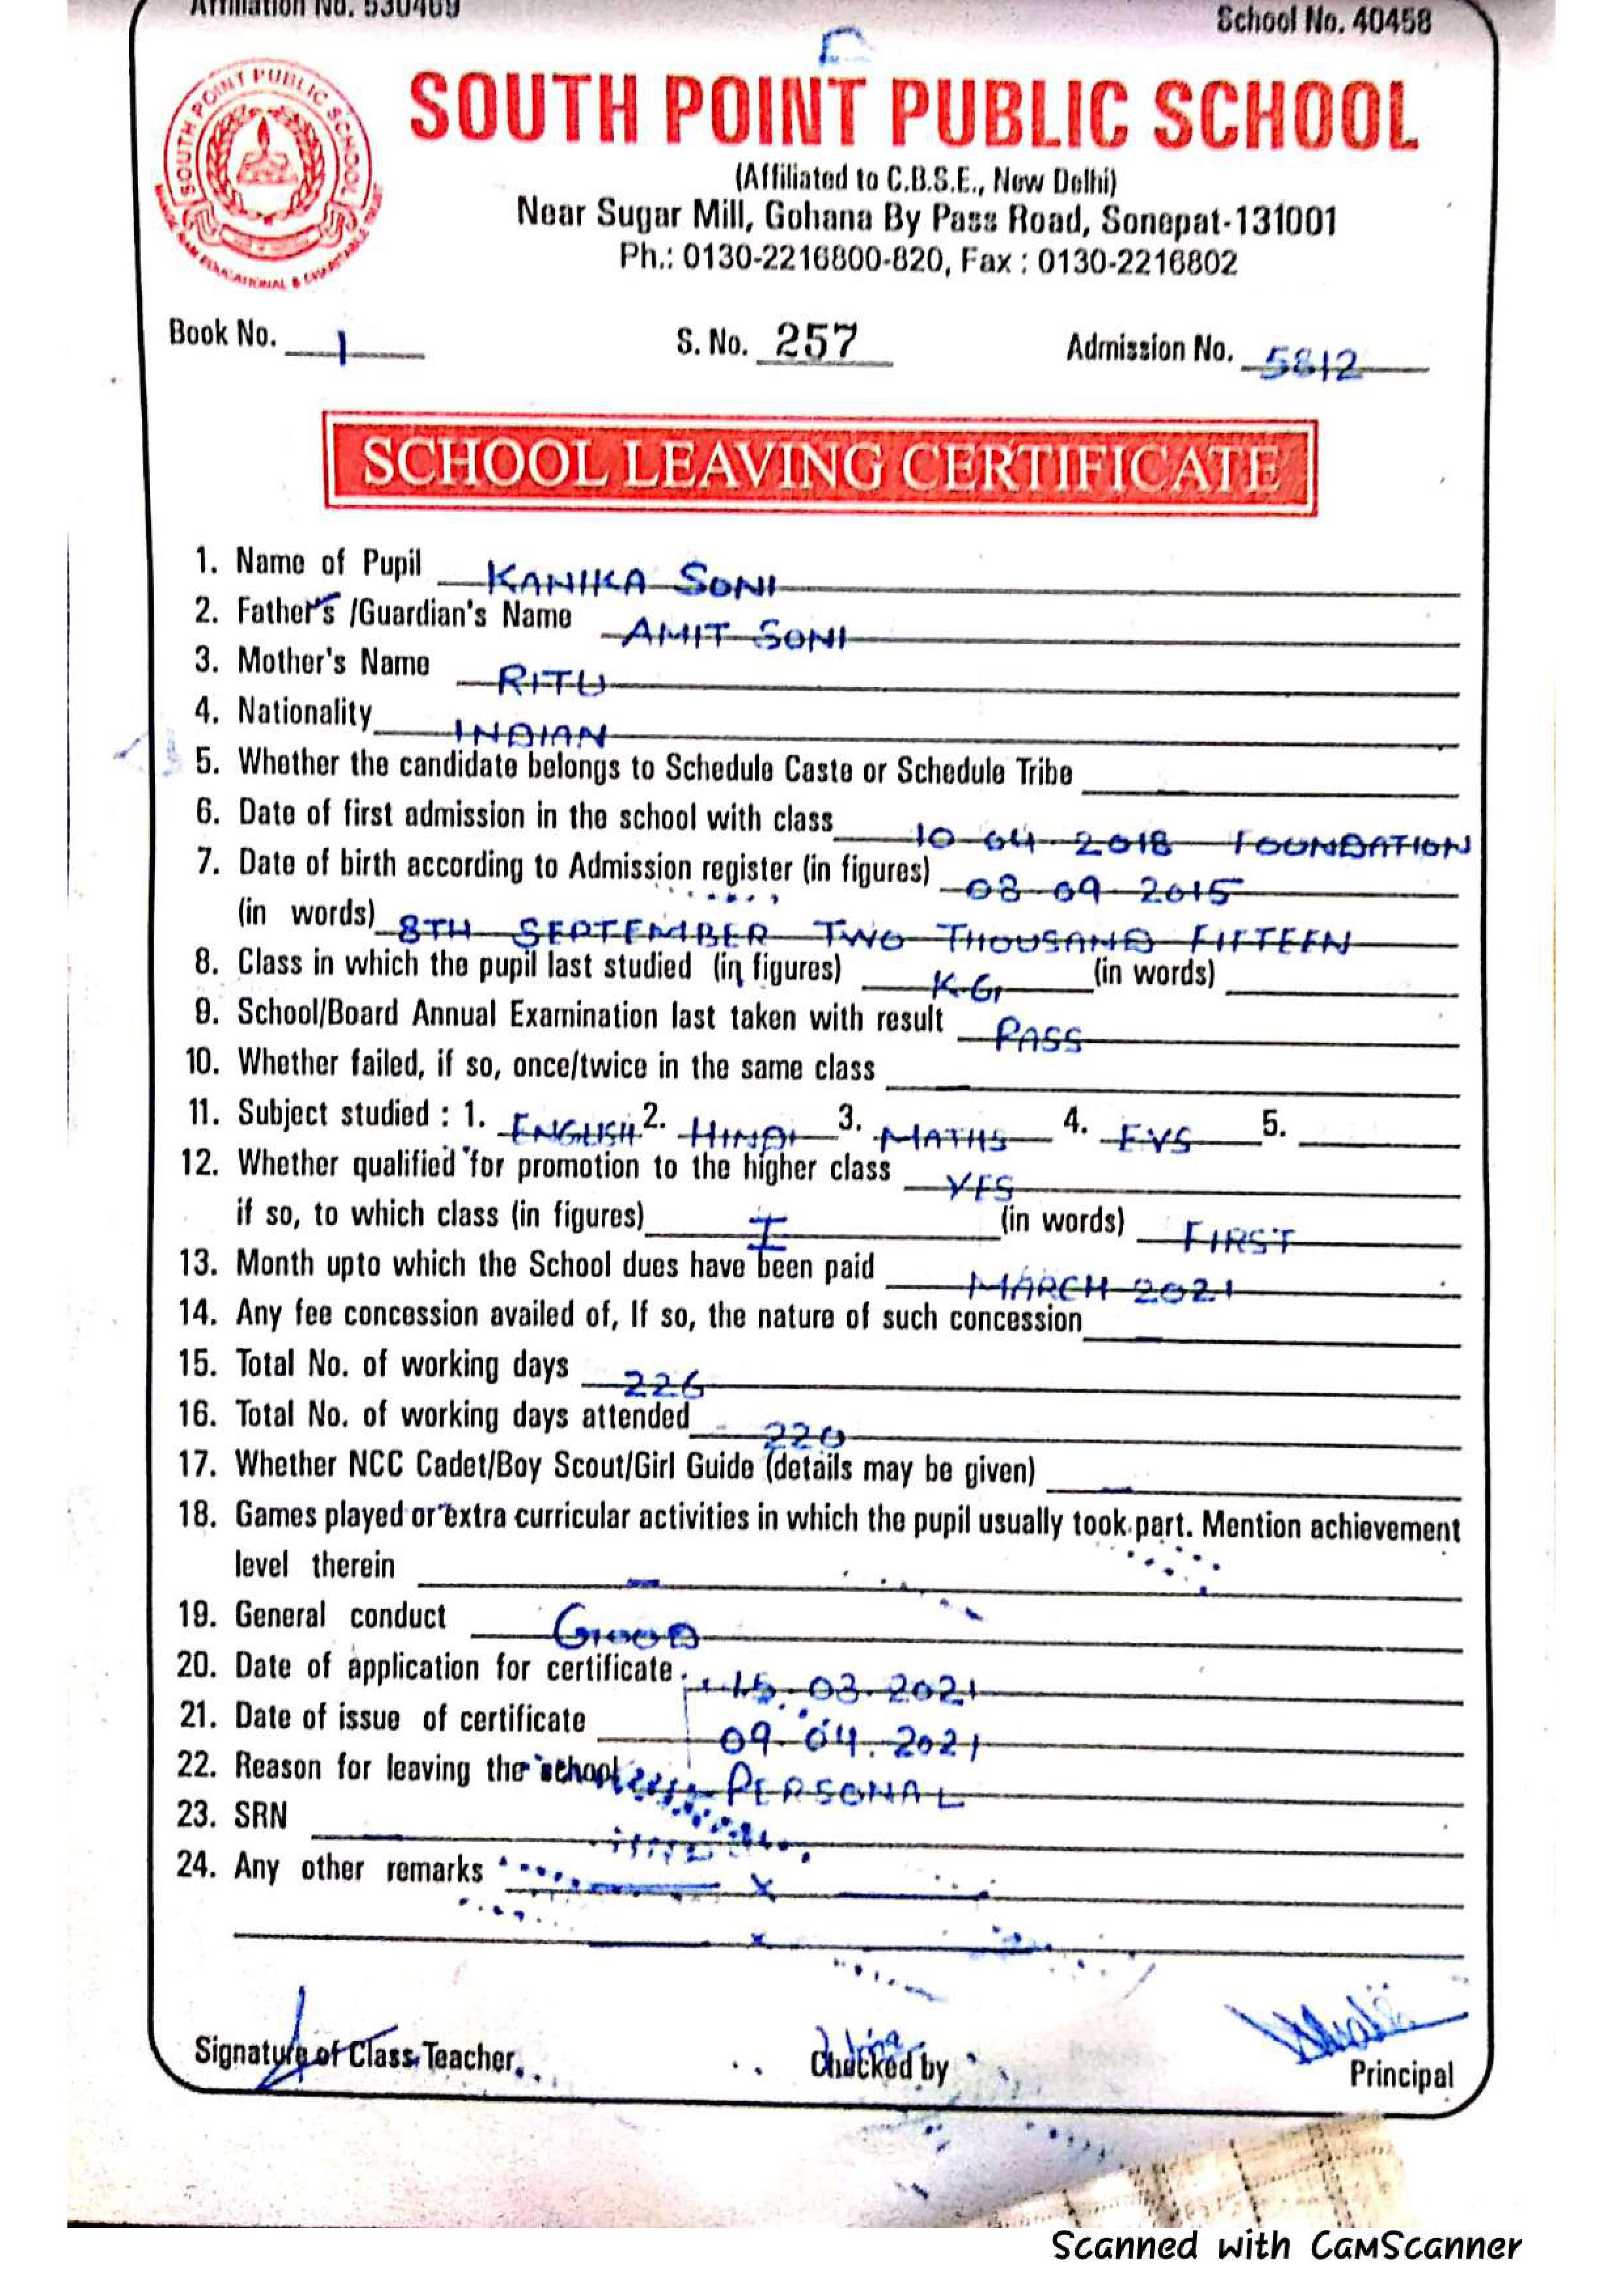 Affiliation No. 530469 School No. 40458
SOUTH POINT PUBLIC SCHOOL
SOUTH POINT PUBLIC SCHOOL
(Affiliated to C.B.S.E., New Delhi)
Near Sugar Mill, Gohana By Pass Road, Sonepat-131001
Ph.: 0130-2216800-820, Fax : 0130-2216802
Book No. 1 S. No. 257 Admission No. 5812
SCHOOL LEAVING CERTIFICATE
1. Name of Pupil KANIKA SONI
2. Father's /Guardian's Name AMIT SONI
3. Mother's Name RITU
4. Nationality INDIAN
5. Whether the candidate belongs to Schedule Caste or Schedule Tribe —
6. Date of first admission in the school with class 10-04-2018 FOUNDATION
7. Date of birth according to Admission register (in figures) 08-09-2015
(in words) 8TH SEPTEMBER TWO THOUSAND FIFTEEN
8. Class in which the pupil last studied (in figures) K.G (in words)
9. School/Board Annual Examination last taken with result PASS
10. Whether failed, if so, once/twice in the same class —
11. Subject studied : 1. ENGLISH 2. HINDI 3. MATHS 4. EVS 5.
12. Whether qualified for promotion to the higher class YES
if so, to which class (in figures) I (in words) FIRST
13. Month upto which the School dues have been paid MARCH 2021
14. Any fee concession availed of, If so, the nature of such concession —
15. Total No. of working days 226
16. Total No. of working days attended 220
17. Whether NCC Cadet/Boy Scout/Girl Guide (details may be given) —
18. Games played or extra curricular activities in which the pupil usually took part. Mention achievement
level therein —
19. General conduct GOOD
20. Date of application for certificate 15.03.2021
21. Date of issue of certificate 09.04.2021
22. Reason for leaving the school PERSONAL
23. SRN —
24. Any other remarks — x —
— x —
Signature of Class Teacher Checked by Principal
Scanned with CamScanner